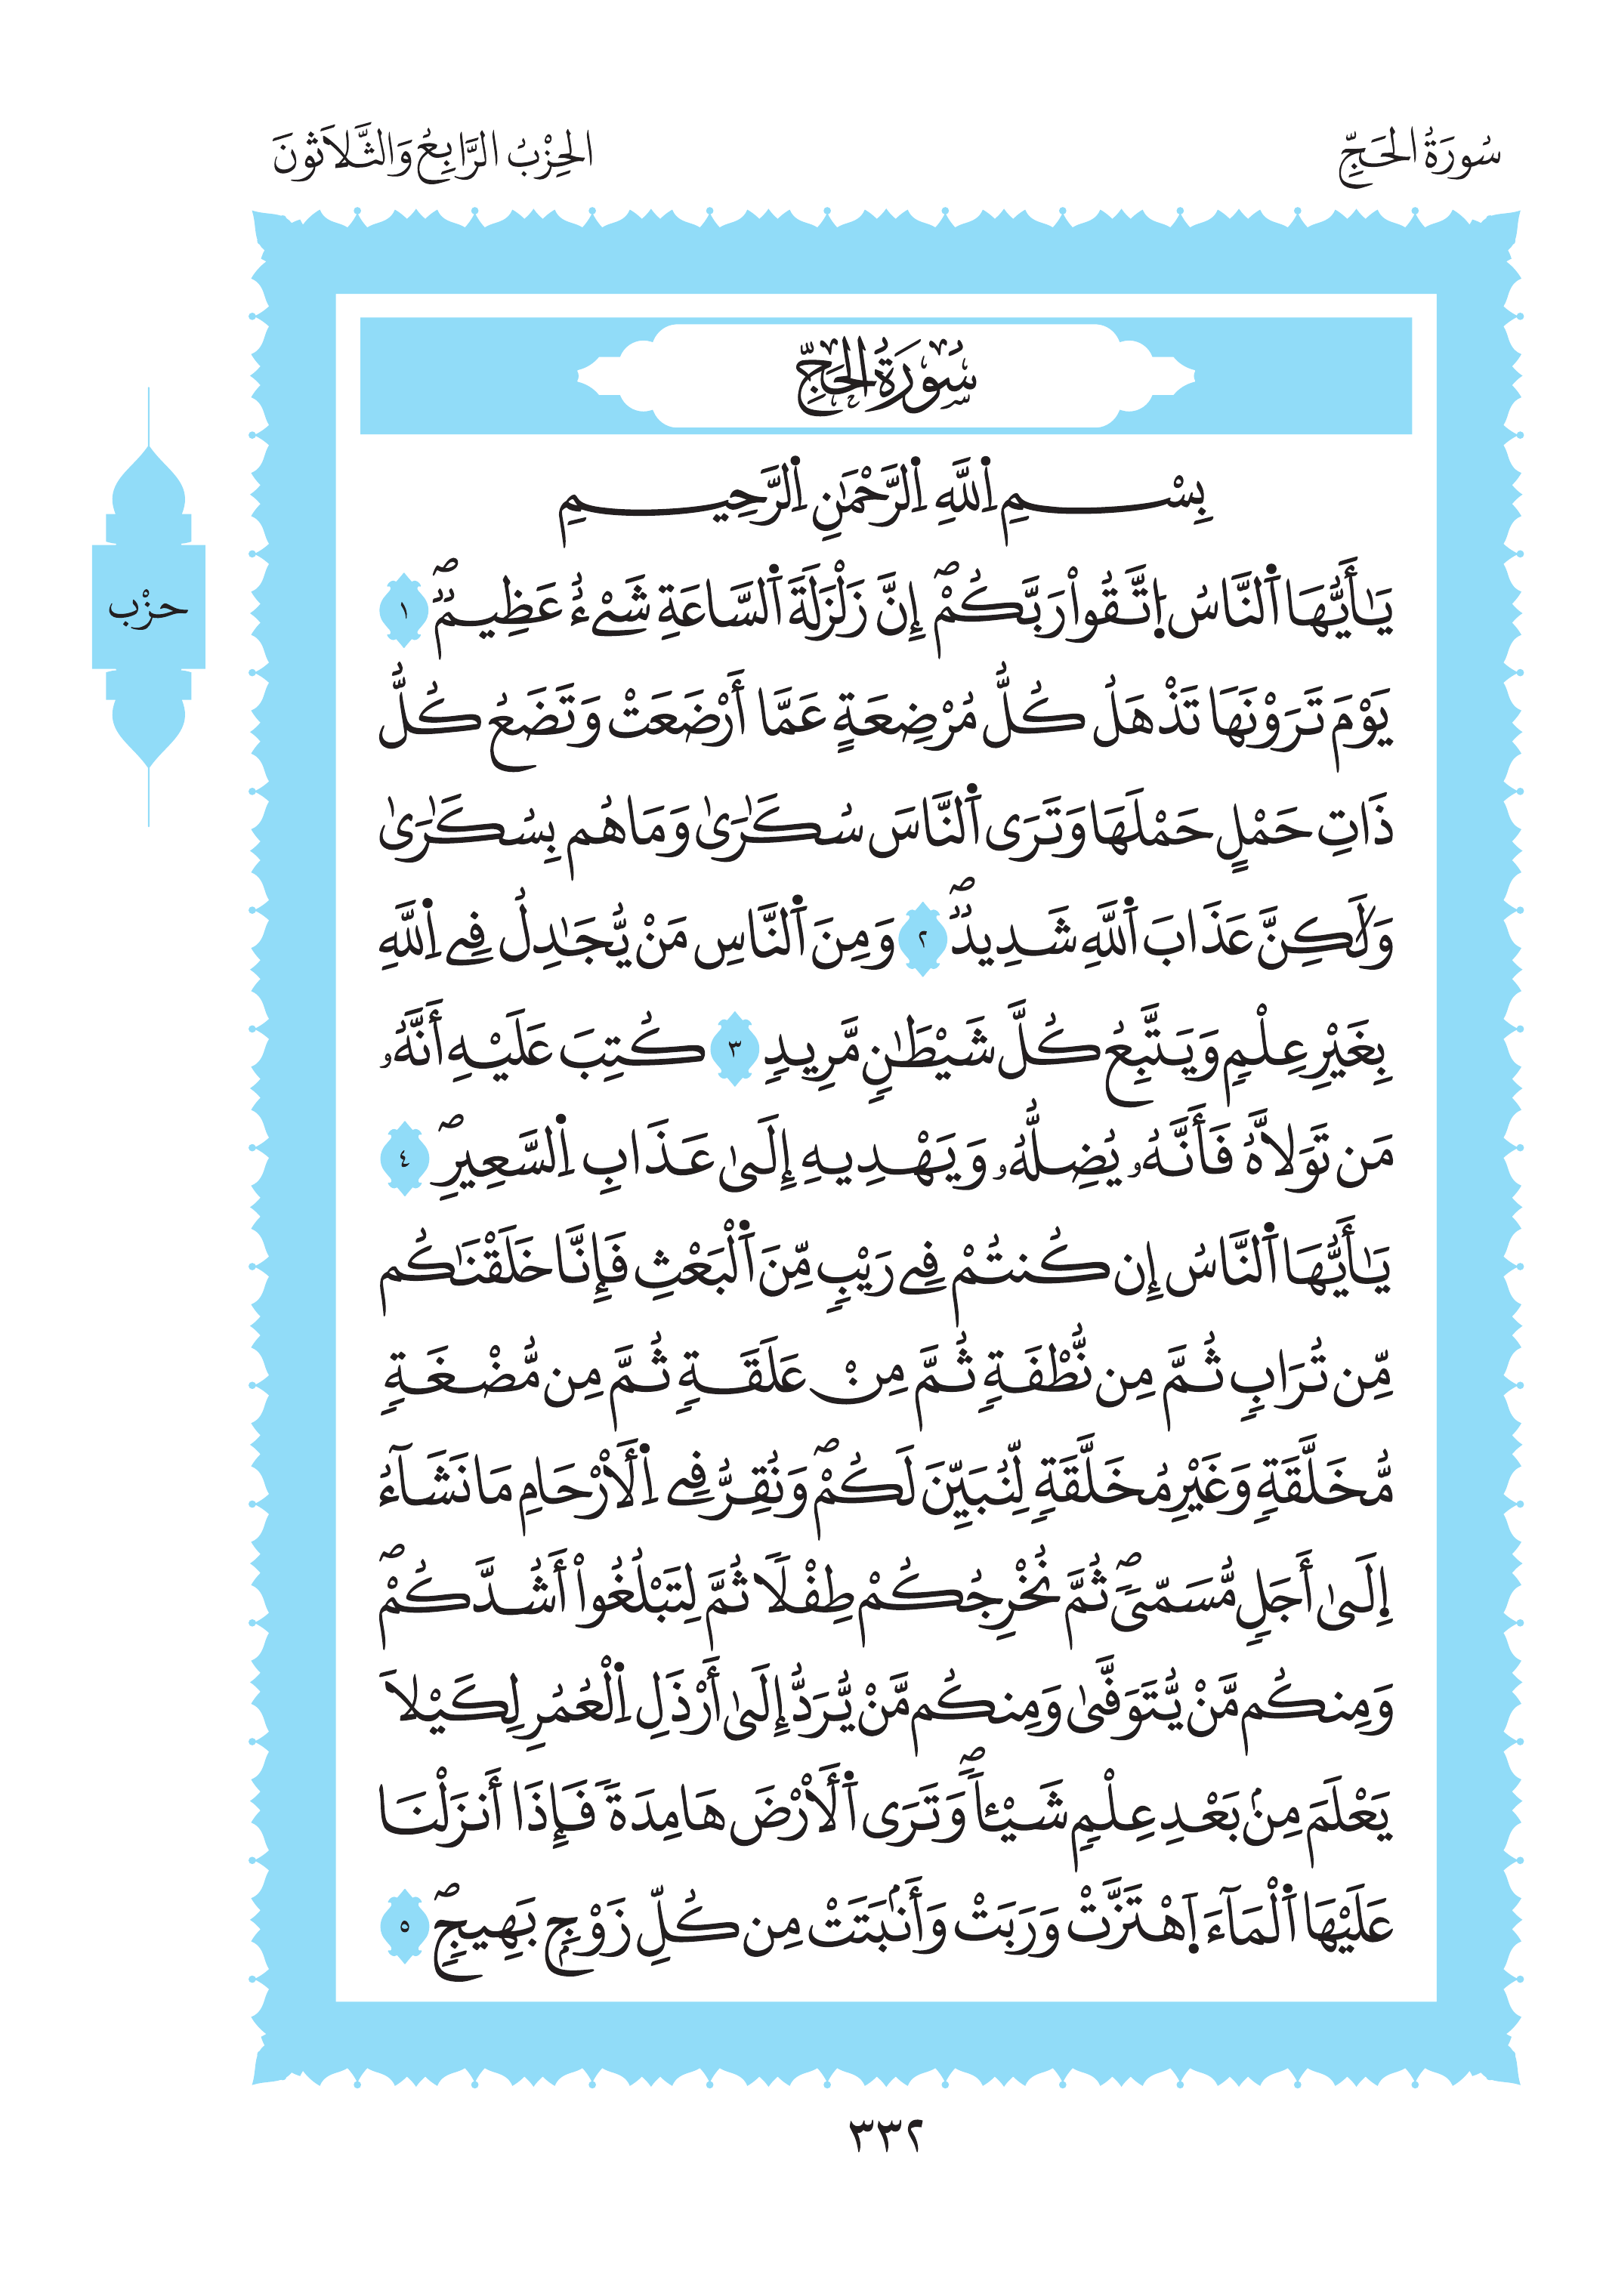 سُورَةُ الحَجِّ
الحِزْبُ الرَّابِعُ وَالثَّلَاثُونَ
سُورَةُ الحَجِّ
بِسْمِ اِ۬للَّهِ اِ۬لرَّحْمَٰنِ اِ۬لرَّحِيمِ
يَٰٓأَيُّهَا اَ۬لنَّاسُ اُ۪تَّقُواْ رَبَّكُمْۖ إِنَّ زَلْزَلَةَ اَ۬لسَّاعَةِ شَےْءٌ عَظِيمٞۖ ١
يَوْمَ تَرَوْنَهَا تَذْهَلُ كُلُّ مُرْضِعَةٍ عَمَّا أَرْضَعَتْ وَتَضَعُ كُلُّ
ذَاتِ حَمْلٍ حَمْلَهَا وَتَرَى اَ۬لنَّاسَ سُكَٰرَىٰ وَمَا هُم بِسُكَٰرَىٰ
وَلَٰكِنَّ عَذَابَ اَ۬للَّهِ شَدِيدٞۖ ٢ وَمِنَ اَ۬لنَّاسِ مَنْ يُّجَٰدِلُ فِے اِ۬للَّهِ
بِغَيْرِ عِلْمٖ وَيَتَّبِعُ كُلَّ شَيْطَٰنٖ مَّرِيدٖ ٣ كُتِبَ عَلَيْهِ أَنَّهُۥ
مَن تَوَلَّاهُ فَأَنَّهُۥ يُضِلُّهُۥ وَيَهْدِيهِ إِلَىٰ عَذَابِ اِ۬لسَّعِيرِۖ ٤
يَٰٓأَيُّهَا اَ۬لنَّاسُ إِن كُنتُمْ فِے رَيْبٖ مِّنَ اَ۬لْبَعْثِ فَإِنَّا خَلَقْنَٰكُم
مِّن تُرَابٖ ثُمَّ مِن نُّطْفَةٖ ثُمَّ مِنْ عَلَقَةٖ ثُمَّ مِن مُّضْغَةٖ
مُّخَلَّقَةٖ وَغَيْرِ مُخَلَّقَةٖ لِّنُبَيِّنَ لَكُمْۖ وَنُقِرُّ فِے اِ۬لْأَرْحَامِ مَا نَشَآءُ
اِ۪لَىٰٓ أَجَلٖ مُّسَمّىٗۖ ثُمَّ نُخْرِجُكُمْ طِفْلٗا ثُمَّ لِتَبْلُغُواْ أَشُدَّكُمْۖ
وَمِنكُم مَّنْ يُّتَوَفَّىٰ وَمِنكُم مَّنْ يُّرَدُّ إِلَىٰ أَرْذَلِ اِ۬لْعُمُرِ لِكَيْلَا
يَعْلَمَ مِنۢ بَعْدِ عِلْمٖ شَيْـٔاٗۖ وَتَرَى اَ۬لْأَرْضَ هَامِدَةٗ فَإِذَا أَنزَلْنَا
عَلَيْهَا اَ۬لْمَآءَ اَ۪هْتَزَّتْ وَرَبَتْ وَأَنۢبَتَتْ مِن كُلِّ زَوْجِۢ بَهِيجٖۖ ٥
حزْب
٣٣٢